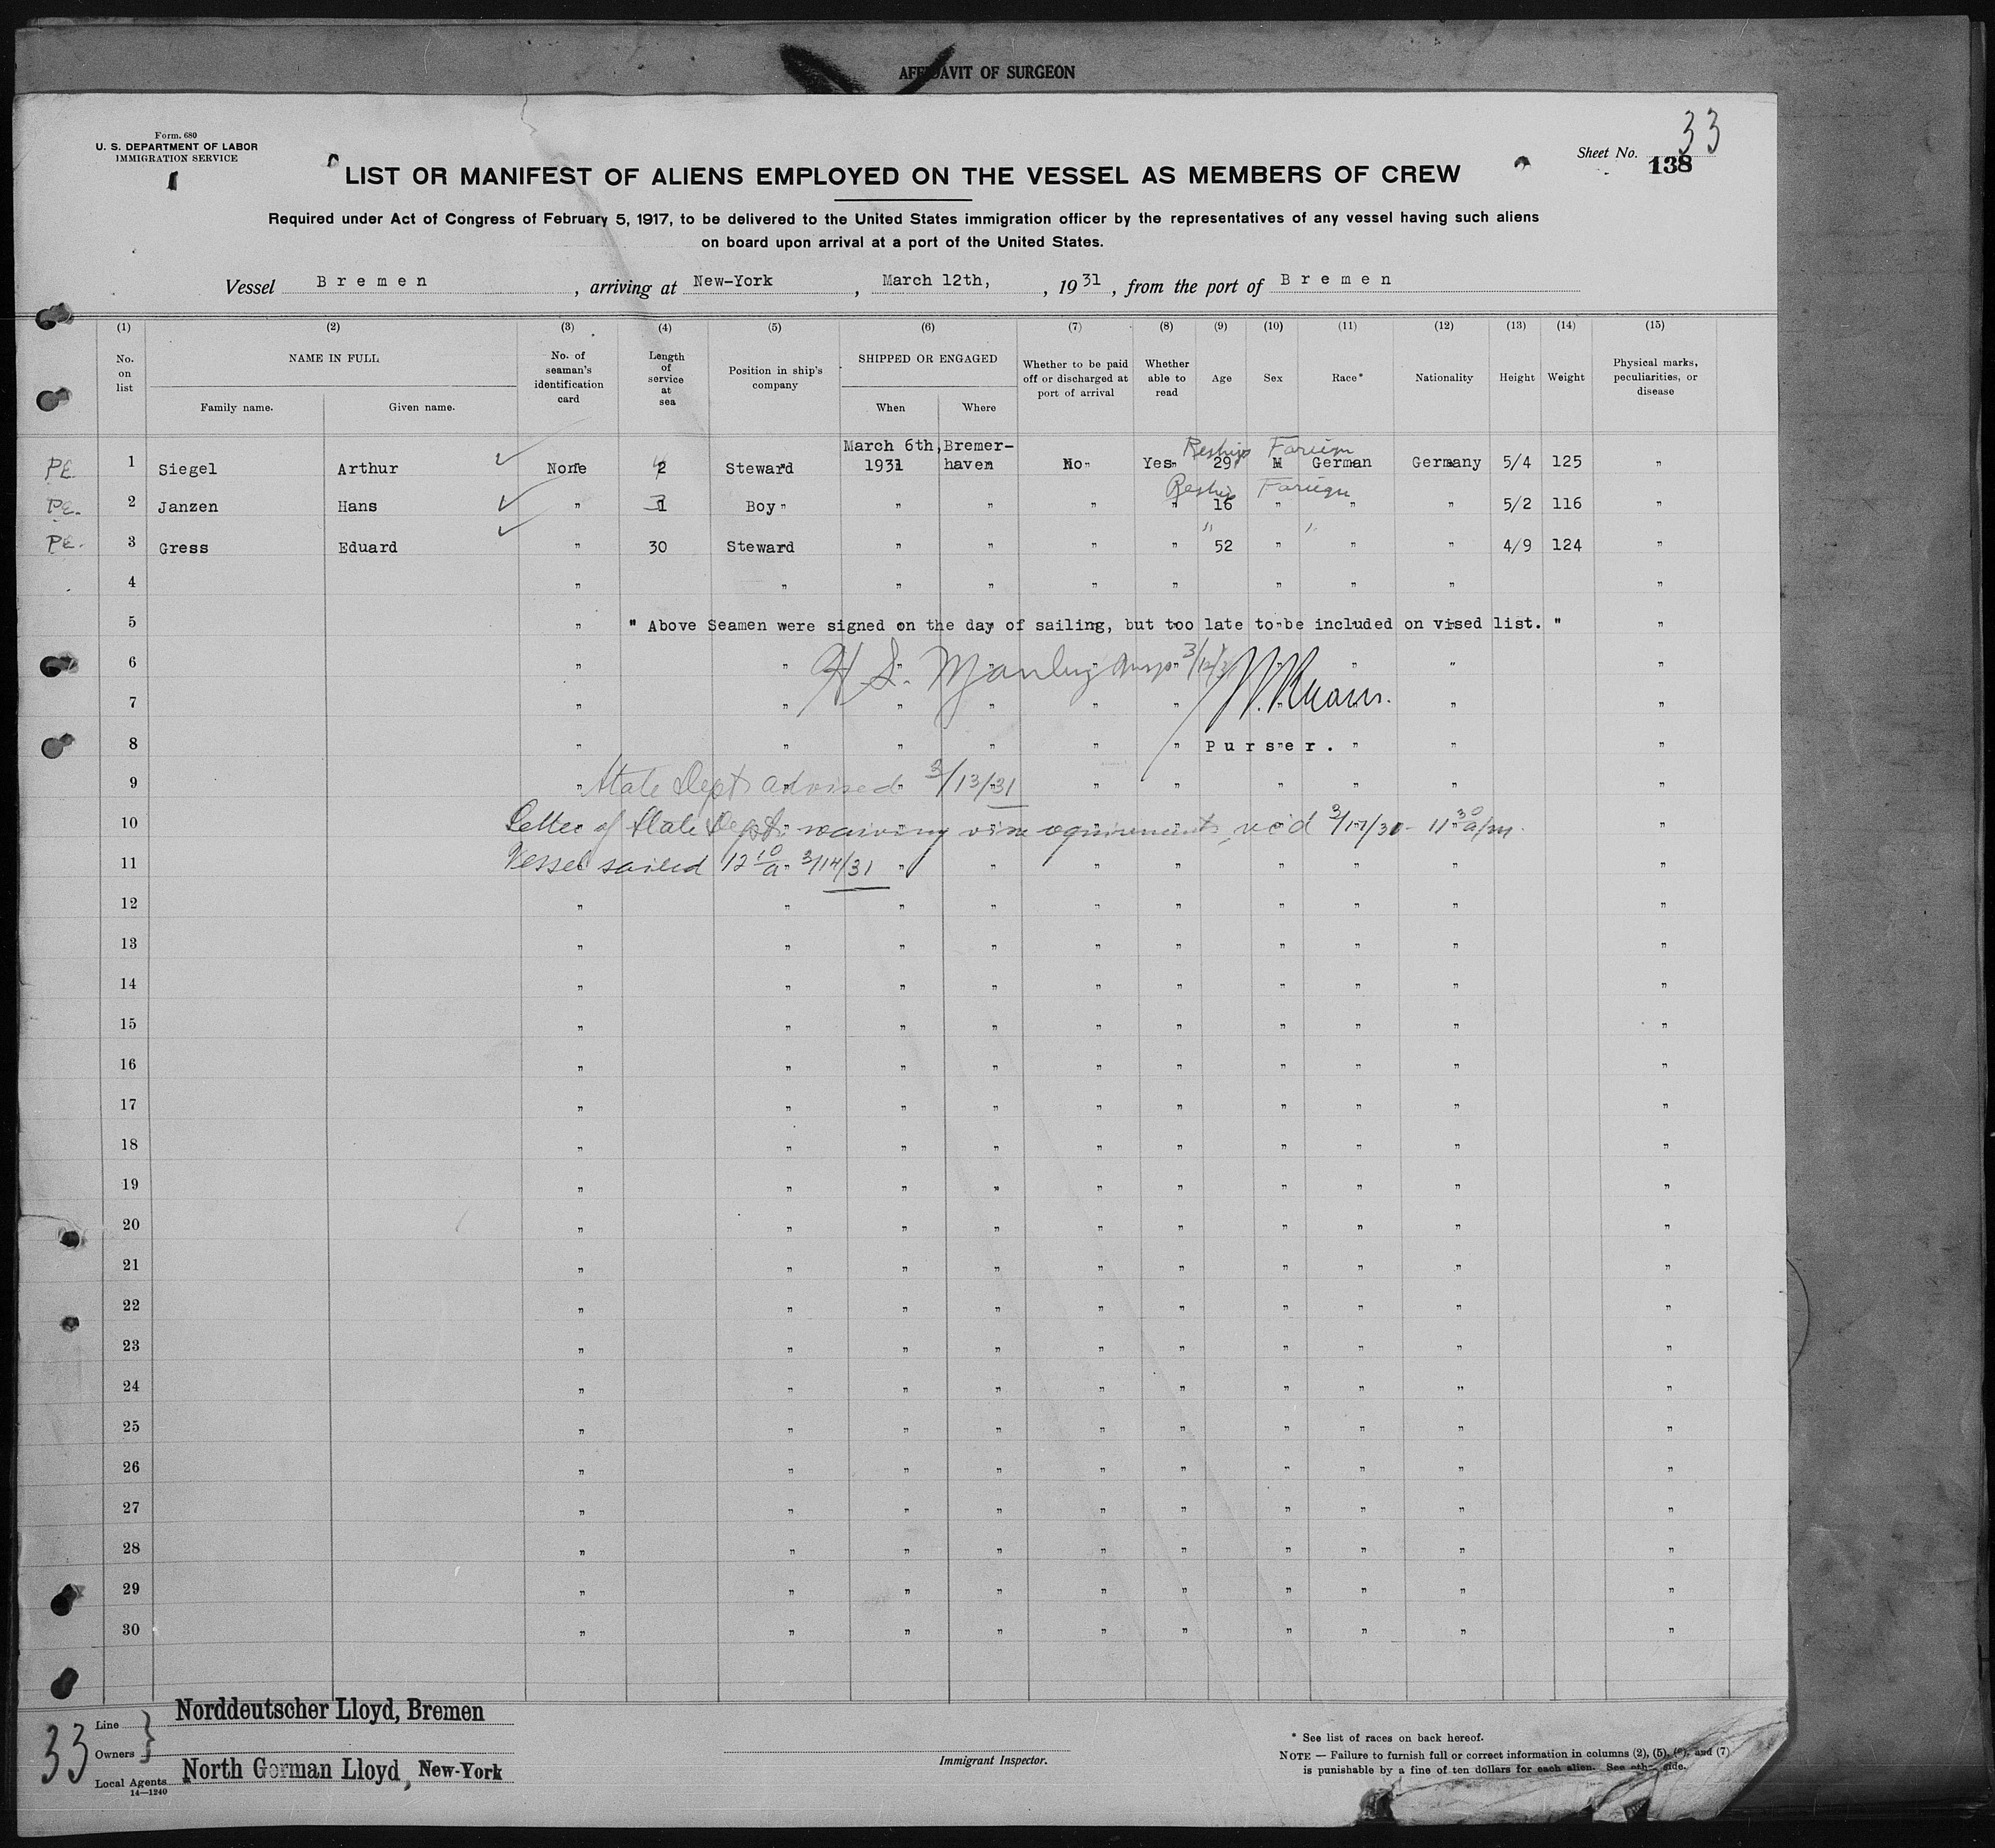 AFFIDAVIT OF SURGEON
Form. 680
U. S. DEPARTMENT OF LABOR
IMMIGRATION SERVICE
33
Sheet No. 138
LIST OR MANIFEST OF ALIENS EMPLOYED ON THE VESSEL AS MEMBERS OF CREW
Required under Act of Congress of February 5, 1917, to be delivered to the United States immigration officer by the representatives of any vessel having such aliens
on board upon arrival at a port of the United States.
Vessel Bremen, arriving at New-York, March 12th, , 1931, from the port of Bremen
(1) (2) (3) (4) (5) (6) (7) (8) (9) (10) (11) (12) (13) (14) (15)
No. on list NAME IN FULL Family name. Given name. No. of seaman's identification card Length of service at sea Position in ship's company SHIPPED OR ENGAGED When Where Whether to be paid off or discharged at port of arrival Whether able to read Age Sex Race* Nationality Height Weight Physical marks, peculiarities, or disease
Reships Foreign
PE. 1 Siegel Arthur ✓ None 2 Steward March 6th, 1931 Bremer-haven No Yes 29 M German Germany 5/4 125 "
Reship Foreign
PE. 2 Janzen Hans ✓ " 1 Boy " " " " 16 " " " 5/2 116 "
" "
PE. 3 Gress Eduard ✓ " 30 Steward " " " " 52 " " " 4/9 124 "
4 " " " " " " " " " "
5 " " Above Seamen were signed on the day of sailing, but too late to be included on vised list. " "
6 " " H. S. Manley Insp 3/12/31 " " "
7 " " " " " " " "
8 " " " " " " Purser. " " "
9 " State Dept advised 3/13/31 " " " " " "
10 Letter of State Dept. waiving vise requirements, rec'd 3/17/30 - 11 30 a/m. "
11 Vessel sailed 12 10 a 3/14/31 " " " " " " " "
12 " " " " " " " " " "
13 " " " " " " " " " "
14 " " " " " " " " " "
15 " " " " " " " " " "
16 " " " " " " " " " "
17 " " " " " " " " " "
18 " " " " " " " " " "
19 " " " " " " " " " "
20 " " " " " " " " " "
21 " " " " " " " " " "
22 " " " " " " " " " "
23 " " " " " " " " " "
24 " " " " " " " " " "
25 " " " " " " " " " "
26 " " " " " " " " " "
27 " " " " " " " " " "
28 " " " " " " " " " "
29 " " " " " " " " " "
30 " " " " " " " " " "
33
Line Norddeutscher Lloyd, Bremen
Owners
Local Agents North German Lloyd, New-York
14—1240
Immigrant Inspector.
* See list of races on back hereof.
NOTE — Failure to furnish full or correct information in columns (2), (5), (6), and (7)
is punishable by a fine of ten dollars for each alien. See other side.